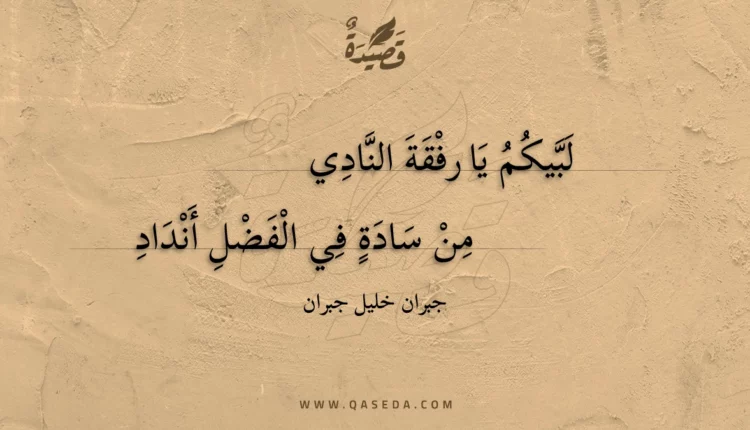 قَصِيدَةٌ
لَبَّيكُمُ يَا رفْقَةَ النَّادِي
مِنْ سَادَةٍ فِي الْفَضْلِ أَنْدَادِ
جبران خليل جبران
WWW.QASEDA.COM